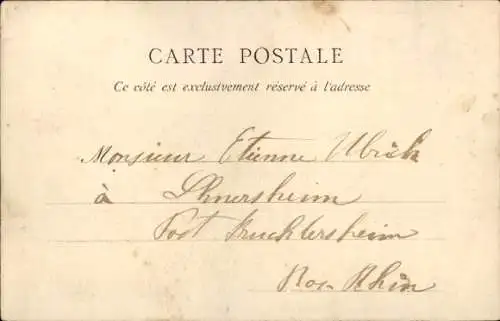 CARTE POSTALE
Ce côté est exclusivement réservé à l'adresse
Monsieur Etienne Ulrich
à Ihnersheim
Post Truchtersheim
Bas-Rhin